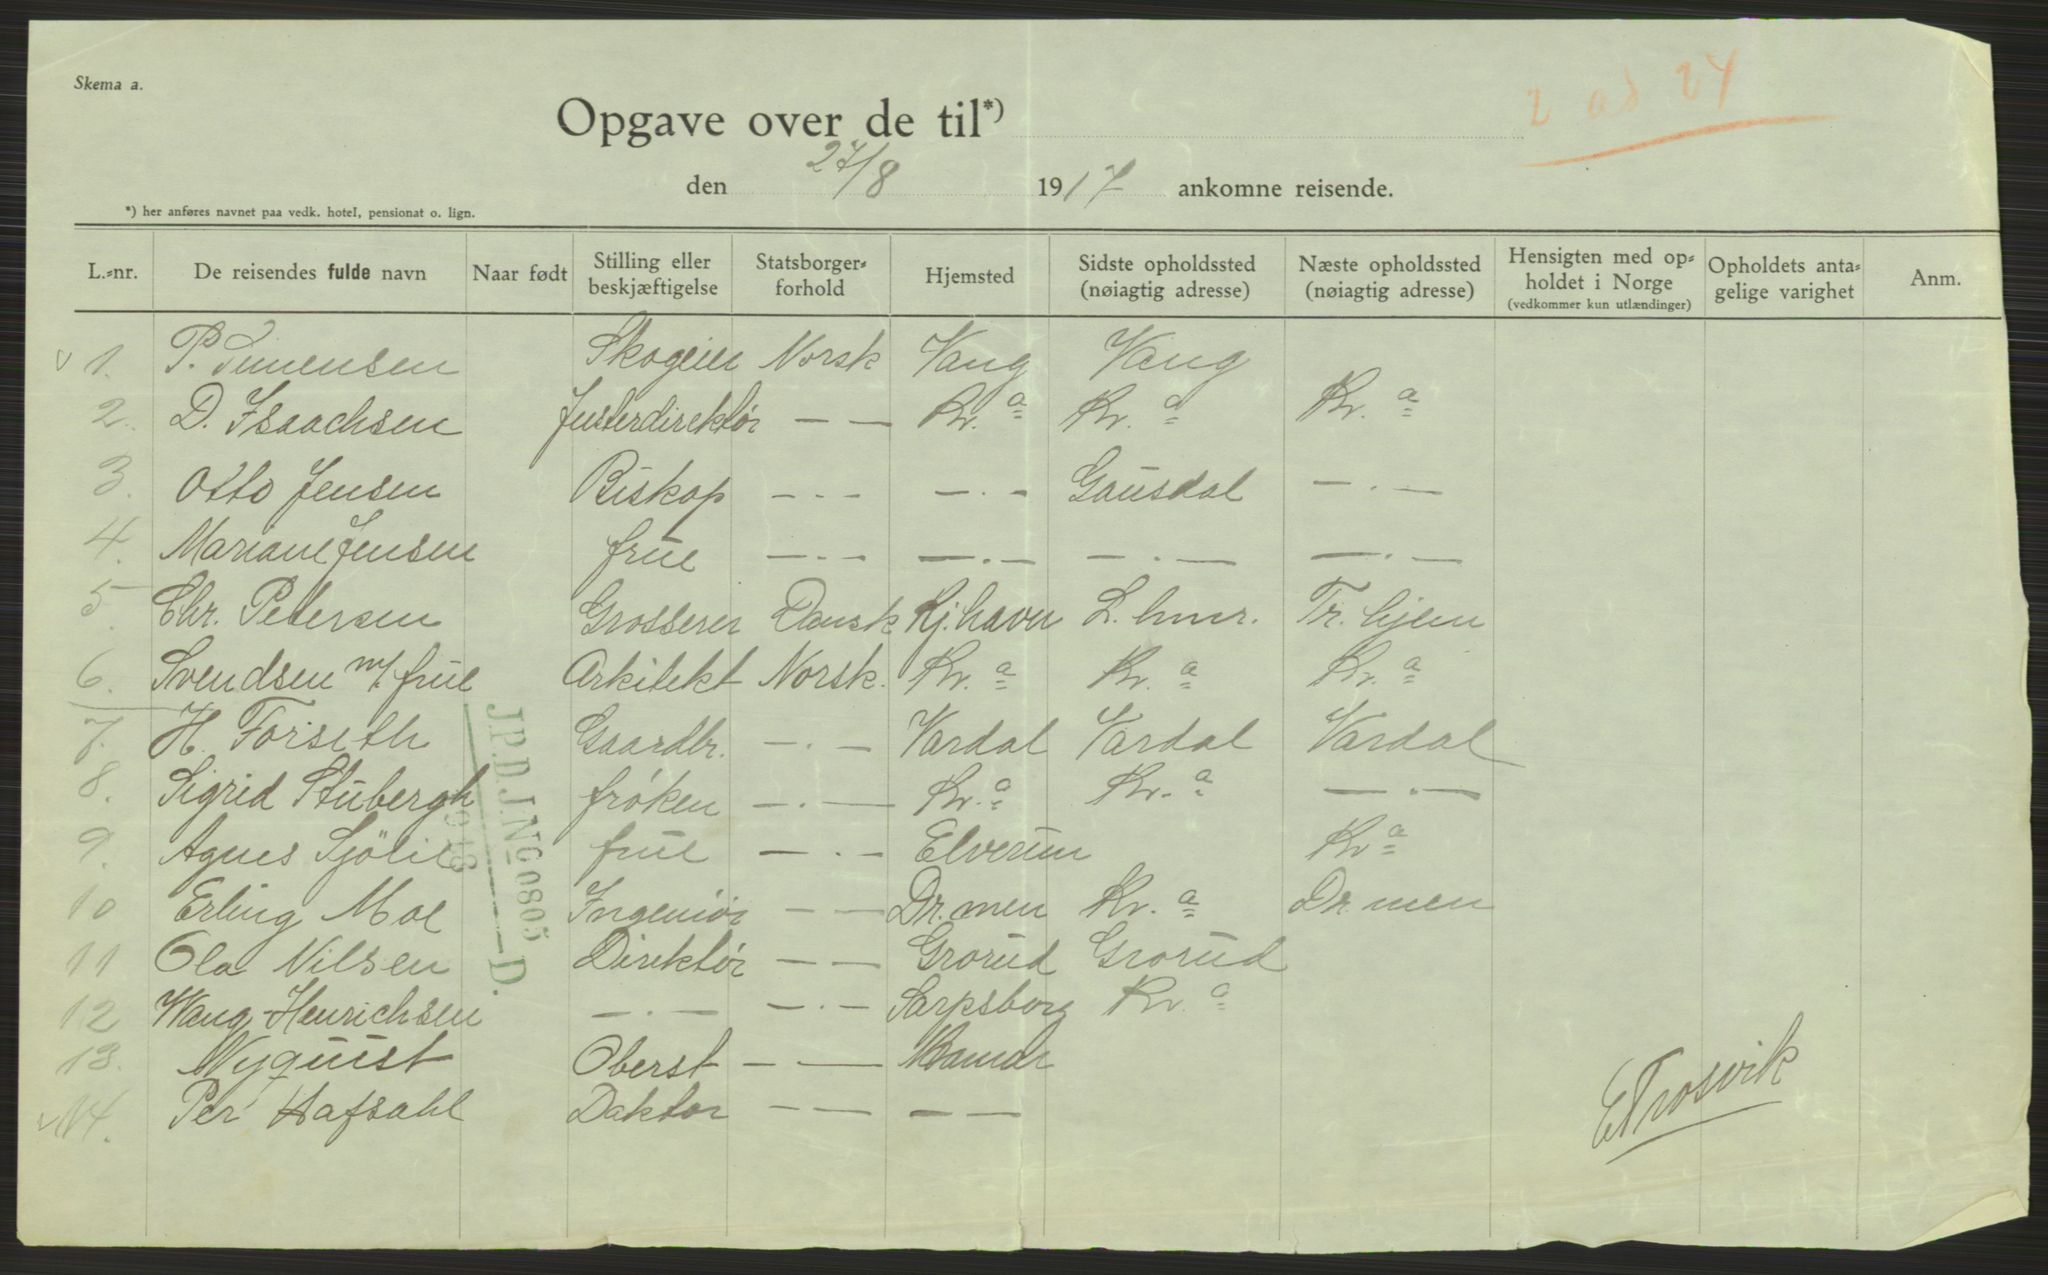 Skema a.
2 ad 24
Opgave over de til*)
den 27/8 1917 ankomne reisende.
*) her anføres navnet paa vedk. hotel, pensionat o. lign.
L.-nr. De reisendes fulde navn Naar født Stilling eller beskjæftigelse Statsborger-forhold Hjemsted Sidste opholdssted (nøiagtig adresse) Næste opholdssted (nøiagtig adresse) Hensigten med op-holdet i Norge (vedkommer kun utlændinger) Opholdets anta-gelige varighet Anm.
v 1. P. Simensen Skogeier Norsk Vang Vang
2. D. Isaachsen Justerdirektør — — Kr.a Kr.a Kr.a
3. Otto Jensen Biskop — . — — . — Gausdal — . —
4. Mariane Jensen frue — . — — . — — . — — . —
5. Chr. Petersen Grosserer Dansk Kj.havn L.hmr. Tr.hjem
6. Svendsen m/ frue Arkitekt Norsk. Kr.a Kr.a Kr.a
7. H. Forseth Gaardbr. — . — Vardal Vardal Vardal
8. Sigrid Stubergh frøken — . — Kr.a Kr.a — . —
9. Agnes Sjölie frue — . — Elverum Kra
10 Erling Moe Ingeniør — — Dr.men Kr.a Dr.men
11 Ola Nilsen Direktør — — Grorud Grorud
12 Wang-Henrichsen — . — — . — Sarpsborg Kr.a
13. Nyquist Oberst — — Hamar
v 14. Per Hafsahl Doktor — — — —
J.P.D.J.No 0805
1918 — D.
E Trosvik